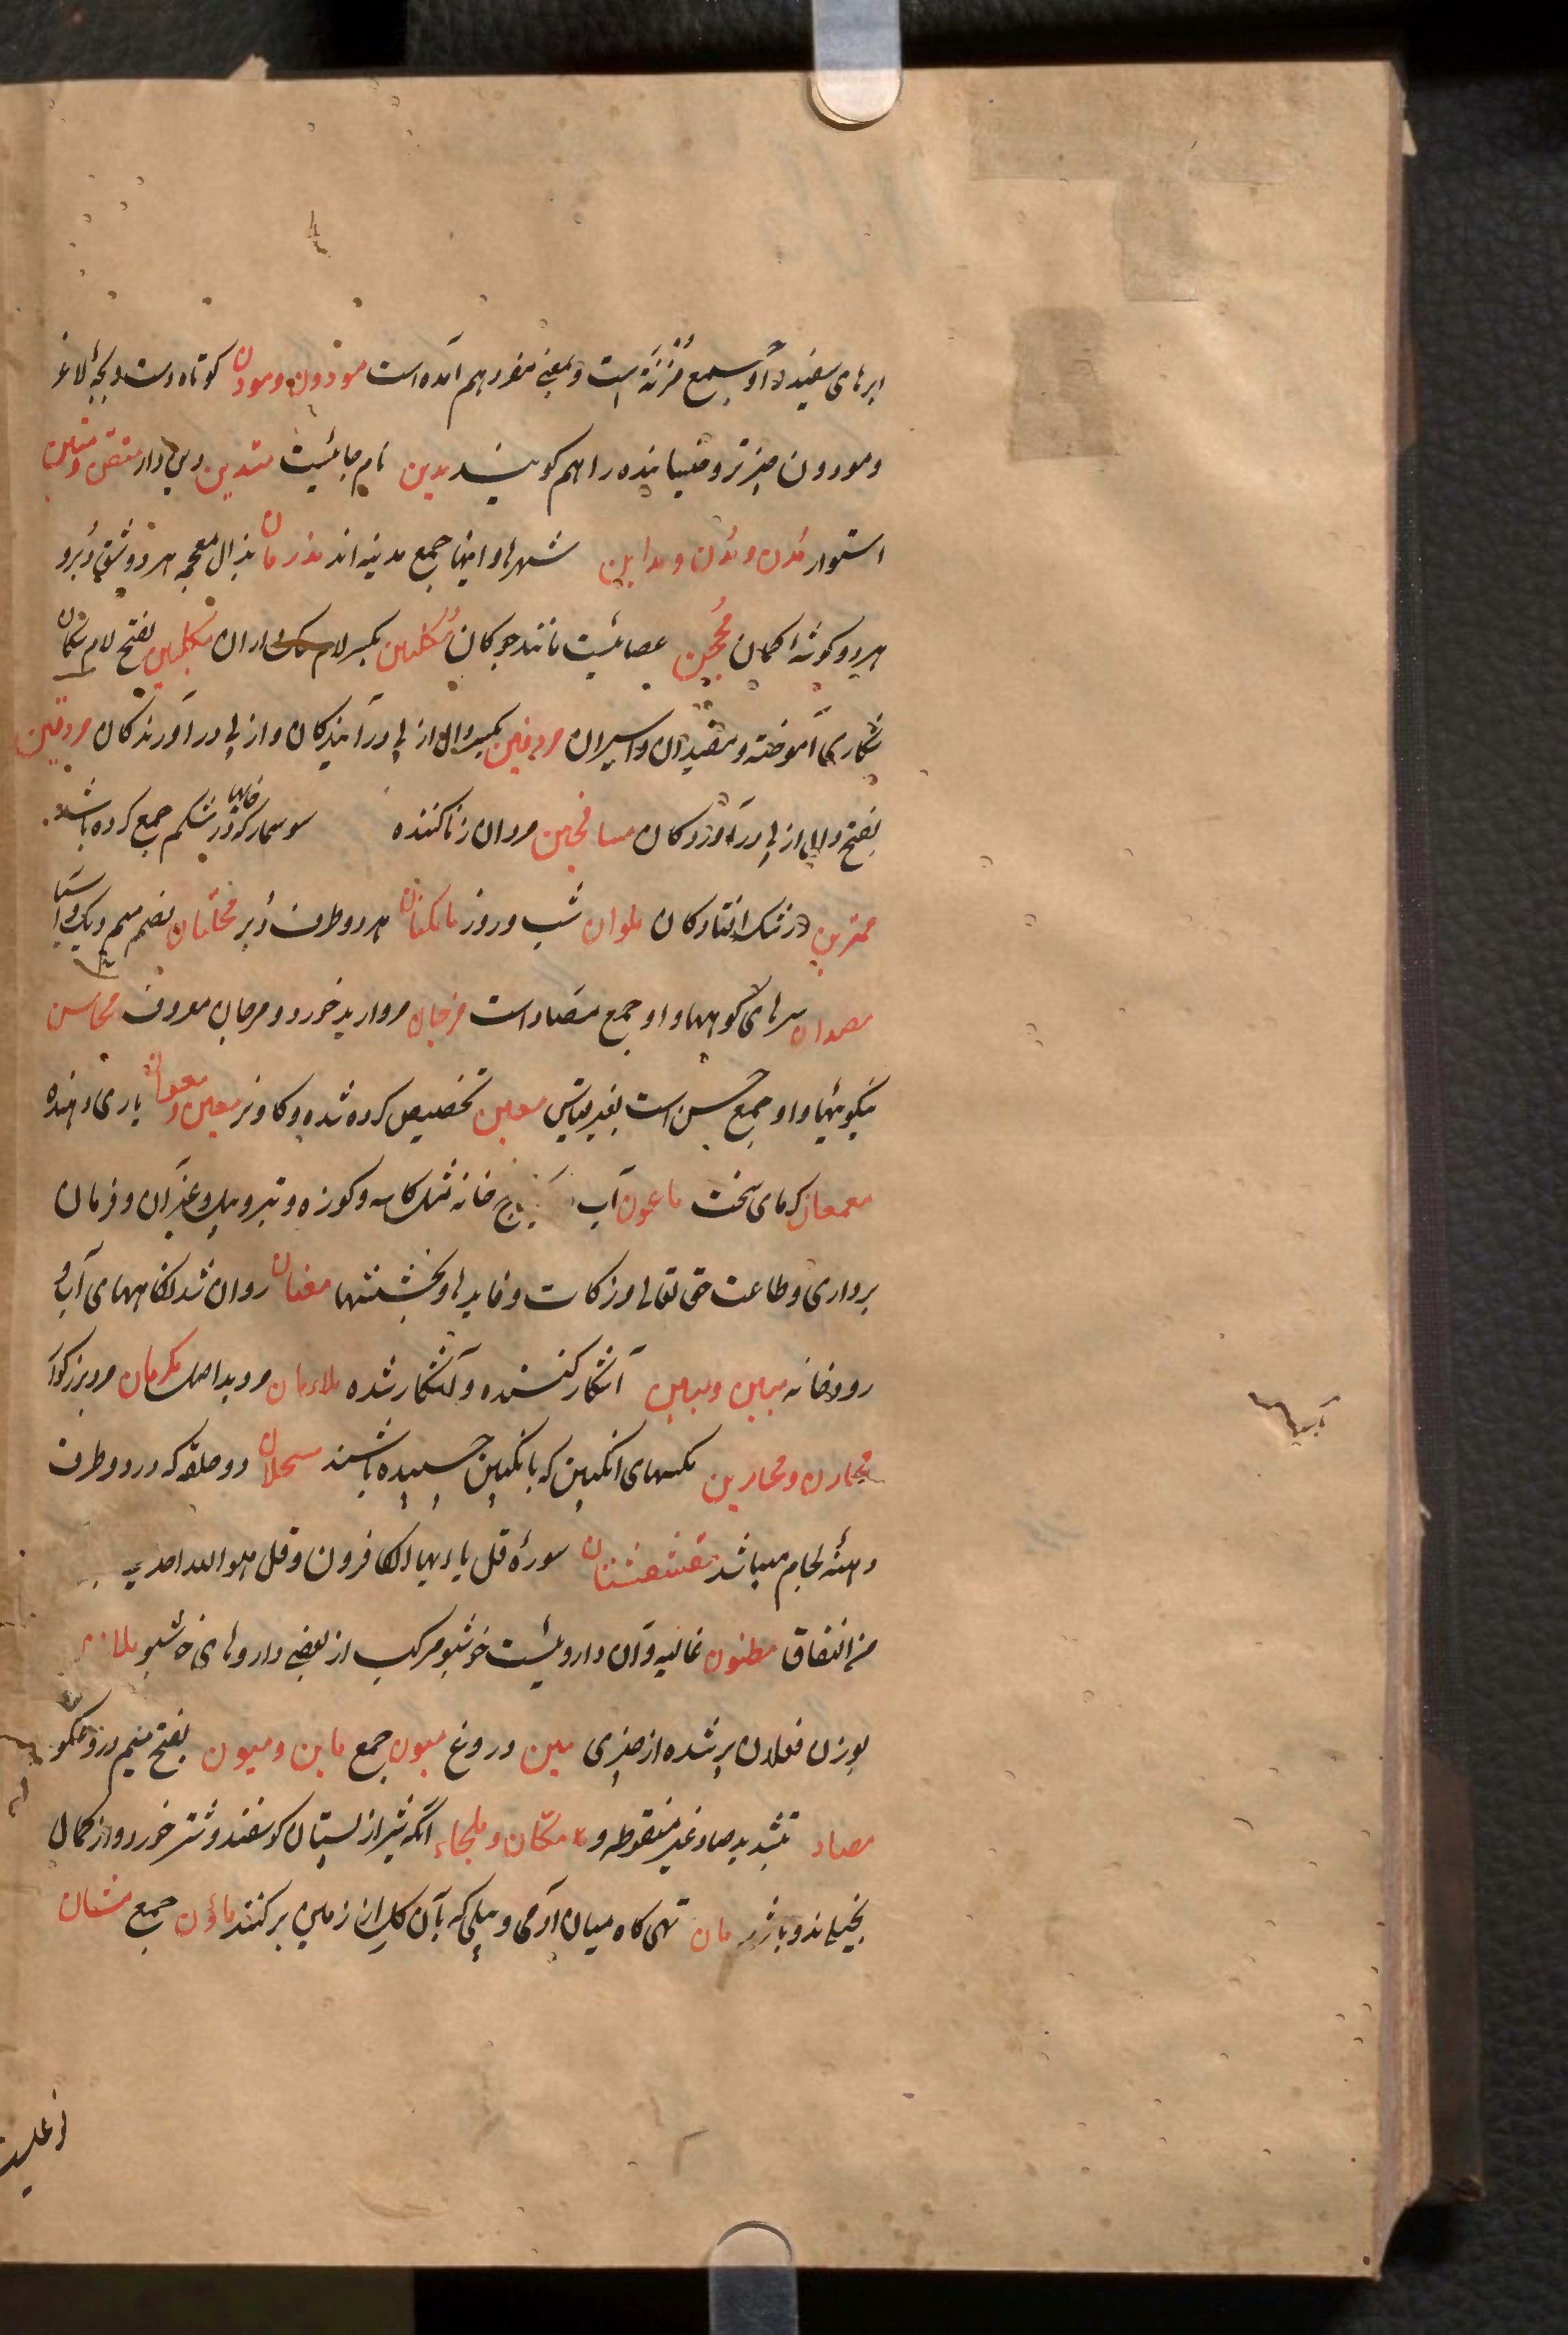 ابرهای سفید و او جمع مُزْنَة است و بمعنی مفرد هم آمده است مودون و مودن کوتاه دست و بچهٔ لاغر
و مودون چیز تر و خیسانیده را هم گویند مدین نام جائیست متدین دین دار متقن و متین
استوار مُدُن و مُدْن و مداین شهرها و اینها جمع مدینه اند مذروان بذال معجمه هر دو شق دُبر و
هر دو گوشهٔ کمان مِحْجَن عصائیست مانند چوگان مُکَلّبین بکسر لام سک داران مکلبین بفتح لام سکان
شکاری آموخته و مقیدان و اسیران مردفین بکسر دال از پی درآیندگان و از پی درآورندگان مردفین
بفتح دال از پی درآوردگان مسافحین مردان زناکننده سوسمار که خایها در شکم جمع کرده باشد
ممترین در شک افتادگان ملوان شب و روز ماکمتان هر دو طرف دُبر محلتان بضم میم دیگ و آسیا
مصدان سرهای کوهها و او جمع مصاد است مرجان مروارید خورد و مرجان معروف محاسن
نیکوئیها و او جمع حسن است بغیر قیاس معین تخصیص کرده شده و گاو نر معین و معوان یاری دهنده
معمعان گرمای سخت ماعون آب خانه مثل کاسه و کوزه و تبر و بیل و غیر آن و فرمان
برداری و طاعت حق تعالی و زکات و فایدها و بخششها معنان روان شدنگاههای آب و
رودخانه مبین و مبین آشکار کننده و آشکار شده ملاءمان مرد بد اصل مکرمان مرد بزرگوار
محارن و محارین مگسهای انگبین که بانگبین چسبیده باشند مسحلان دو حلقه که در دو طرف
دهنه لجام میباشد مقشقشتان سورهٔ قل یا ایها الکافرون و قل هو الله احد
من النفاق مظنون غالیه و آن داروئیست خوشبو مرکب از بعضی داروهای خوشبو ملان
بوزن فعلان پر شده از چیزی مین دروغ میون جمع ماین و میون بفتح میم دروغگو
مصاد بتشدید صاد غیر منقوطه و مکّان و ملجاء آنکه شیر از پستان گوسفند و شتر خورد و از کمال
بخیلی ندوشد مان تهی گاه میان آدمی و بیلی که بآن گل از زمین بر کنند ماؤن جمع متنان
از غلبت